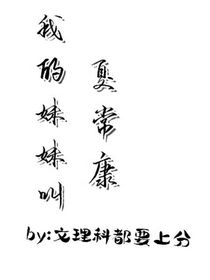 我的妹妹叫
夏常康
by:文理科都要上分